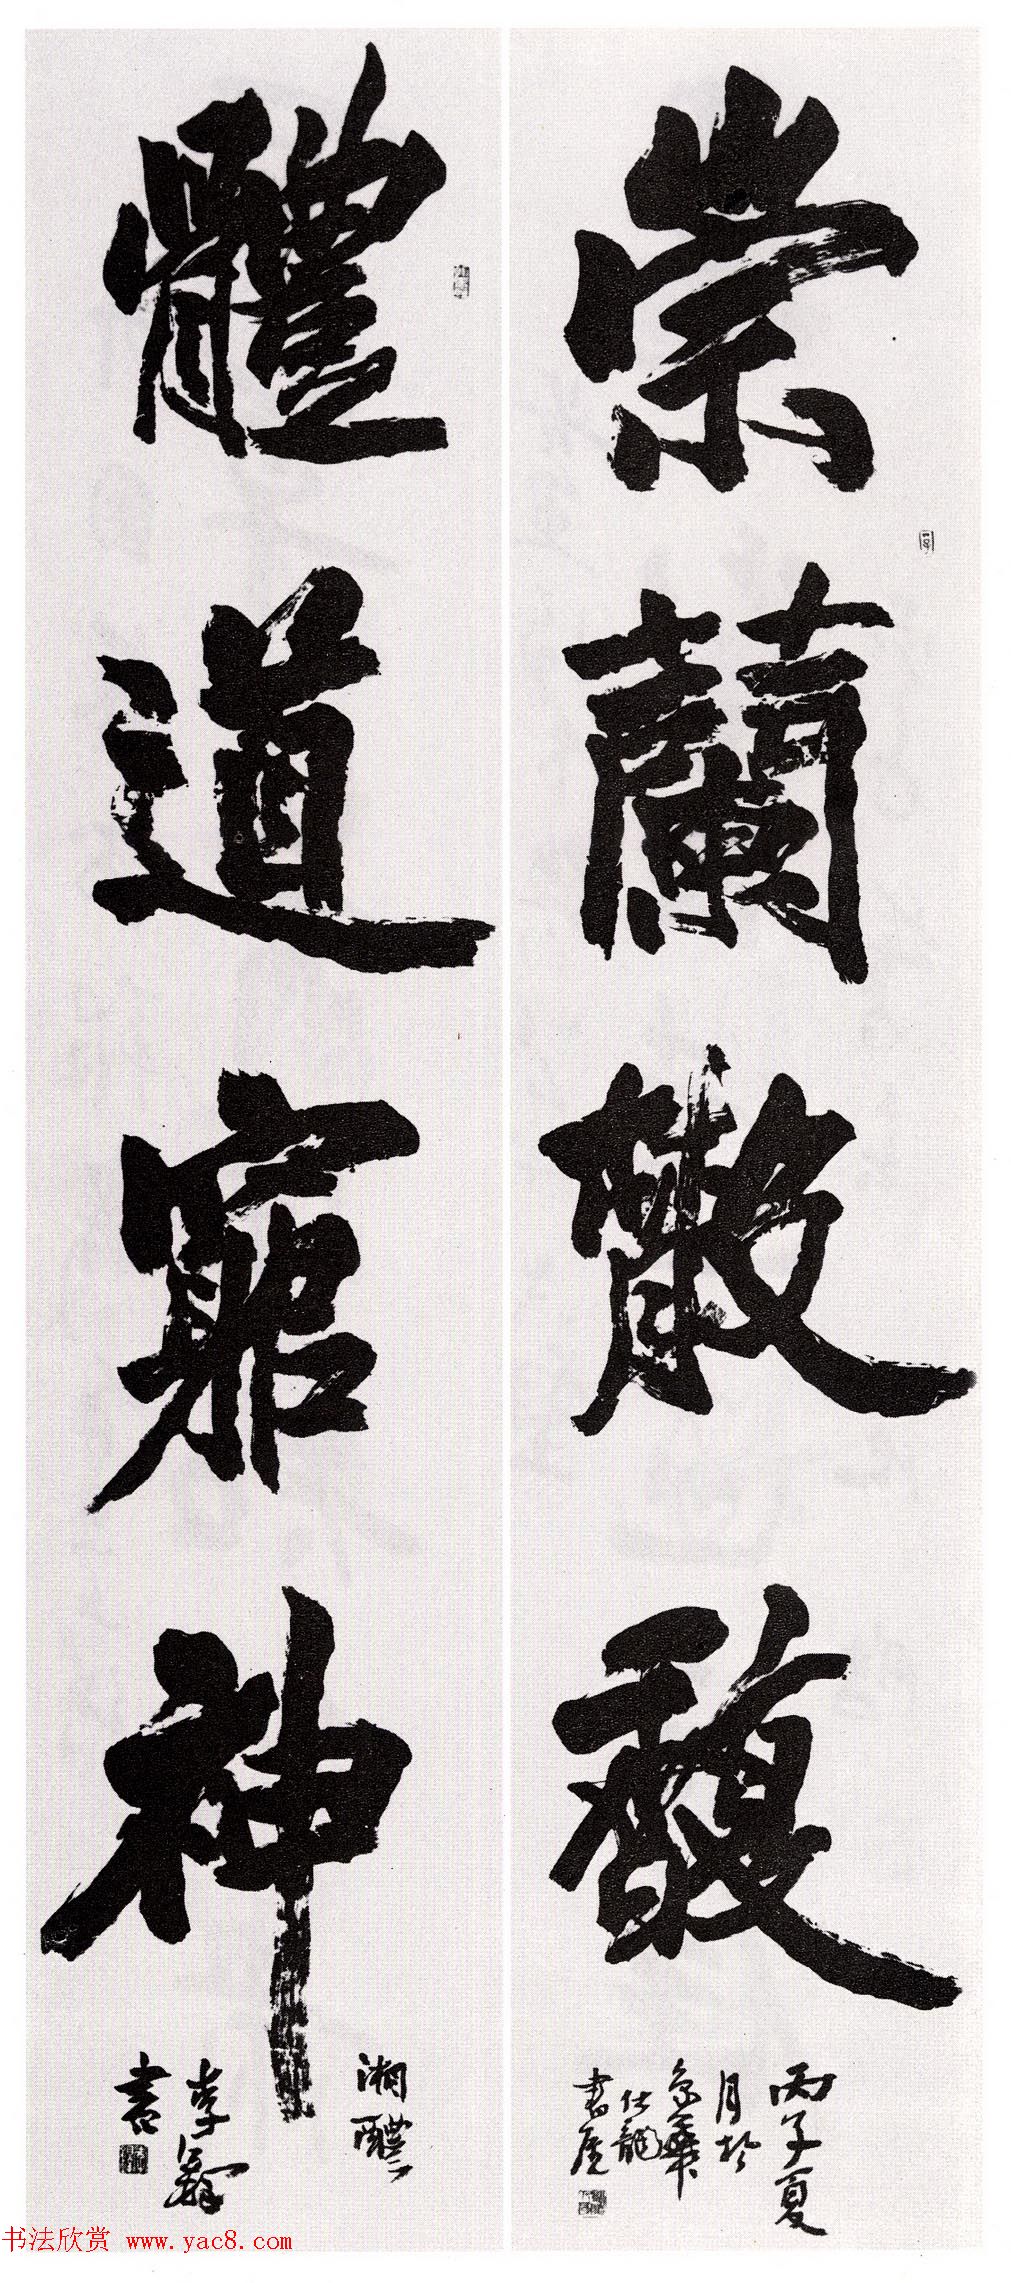 崇蘭散馥
丙子夏
月於
京華
仕龍
書屋
體道窮神
湘醴
李鐸
書
书法欣赏 www.yac8.com